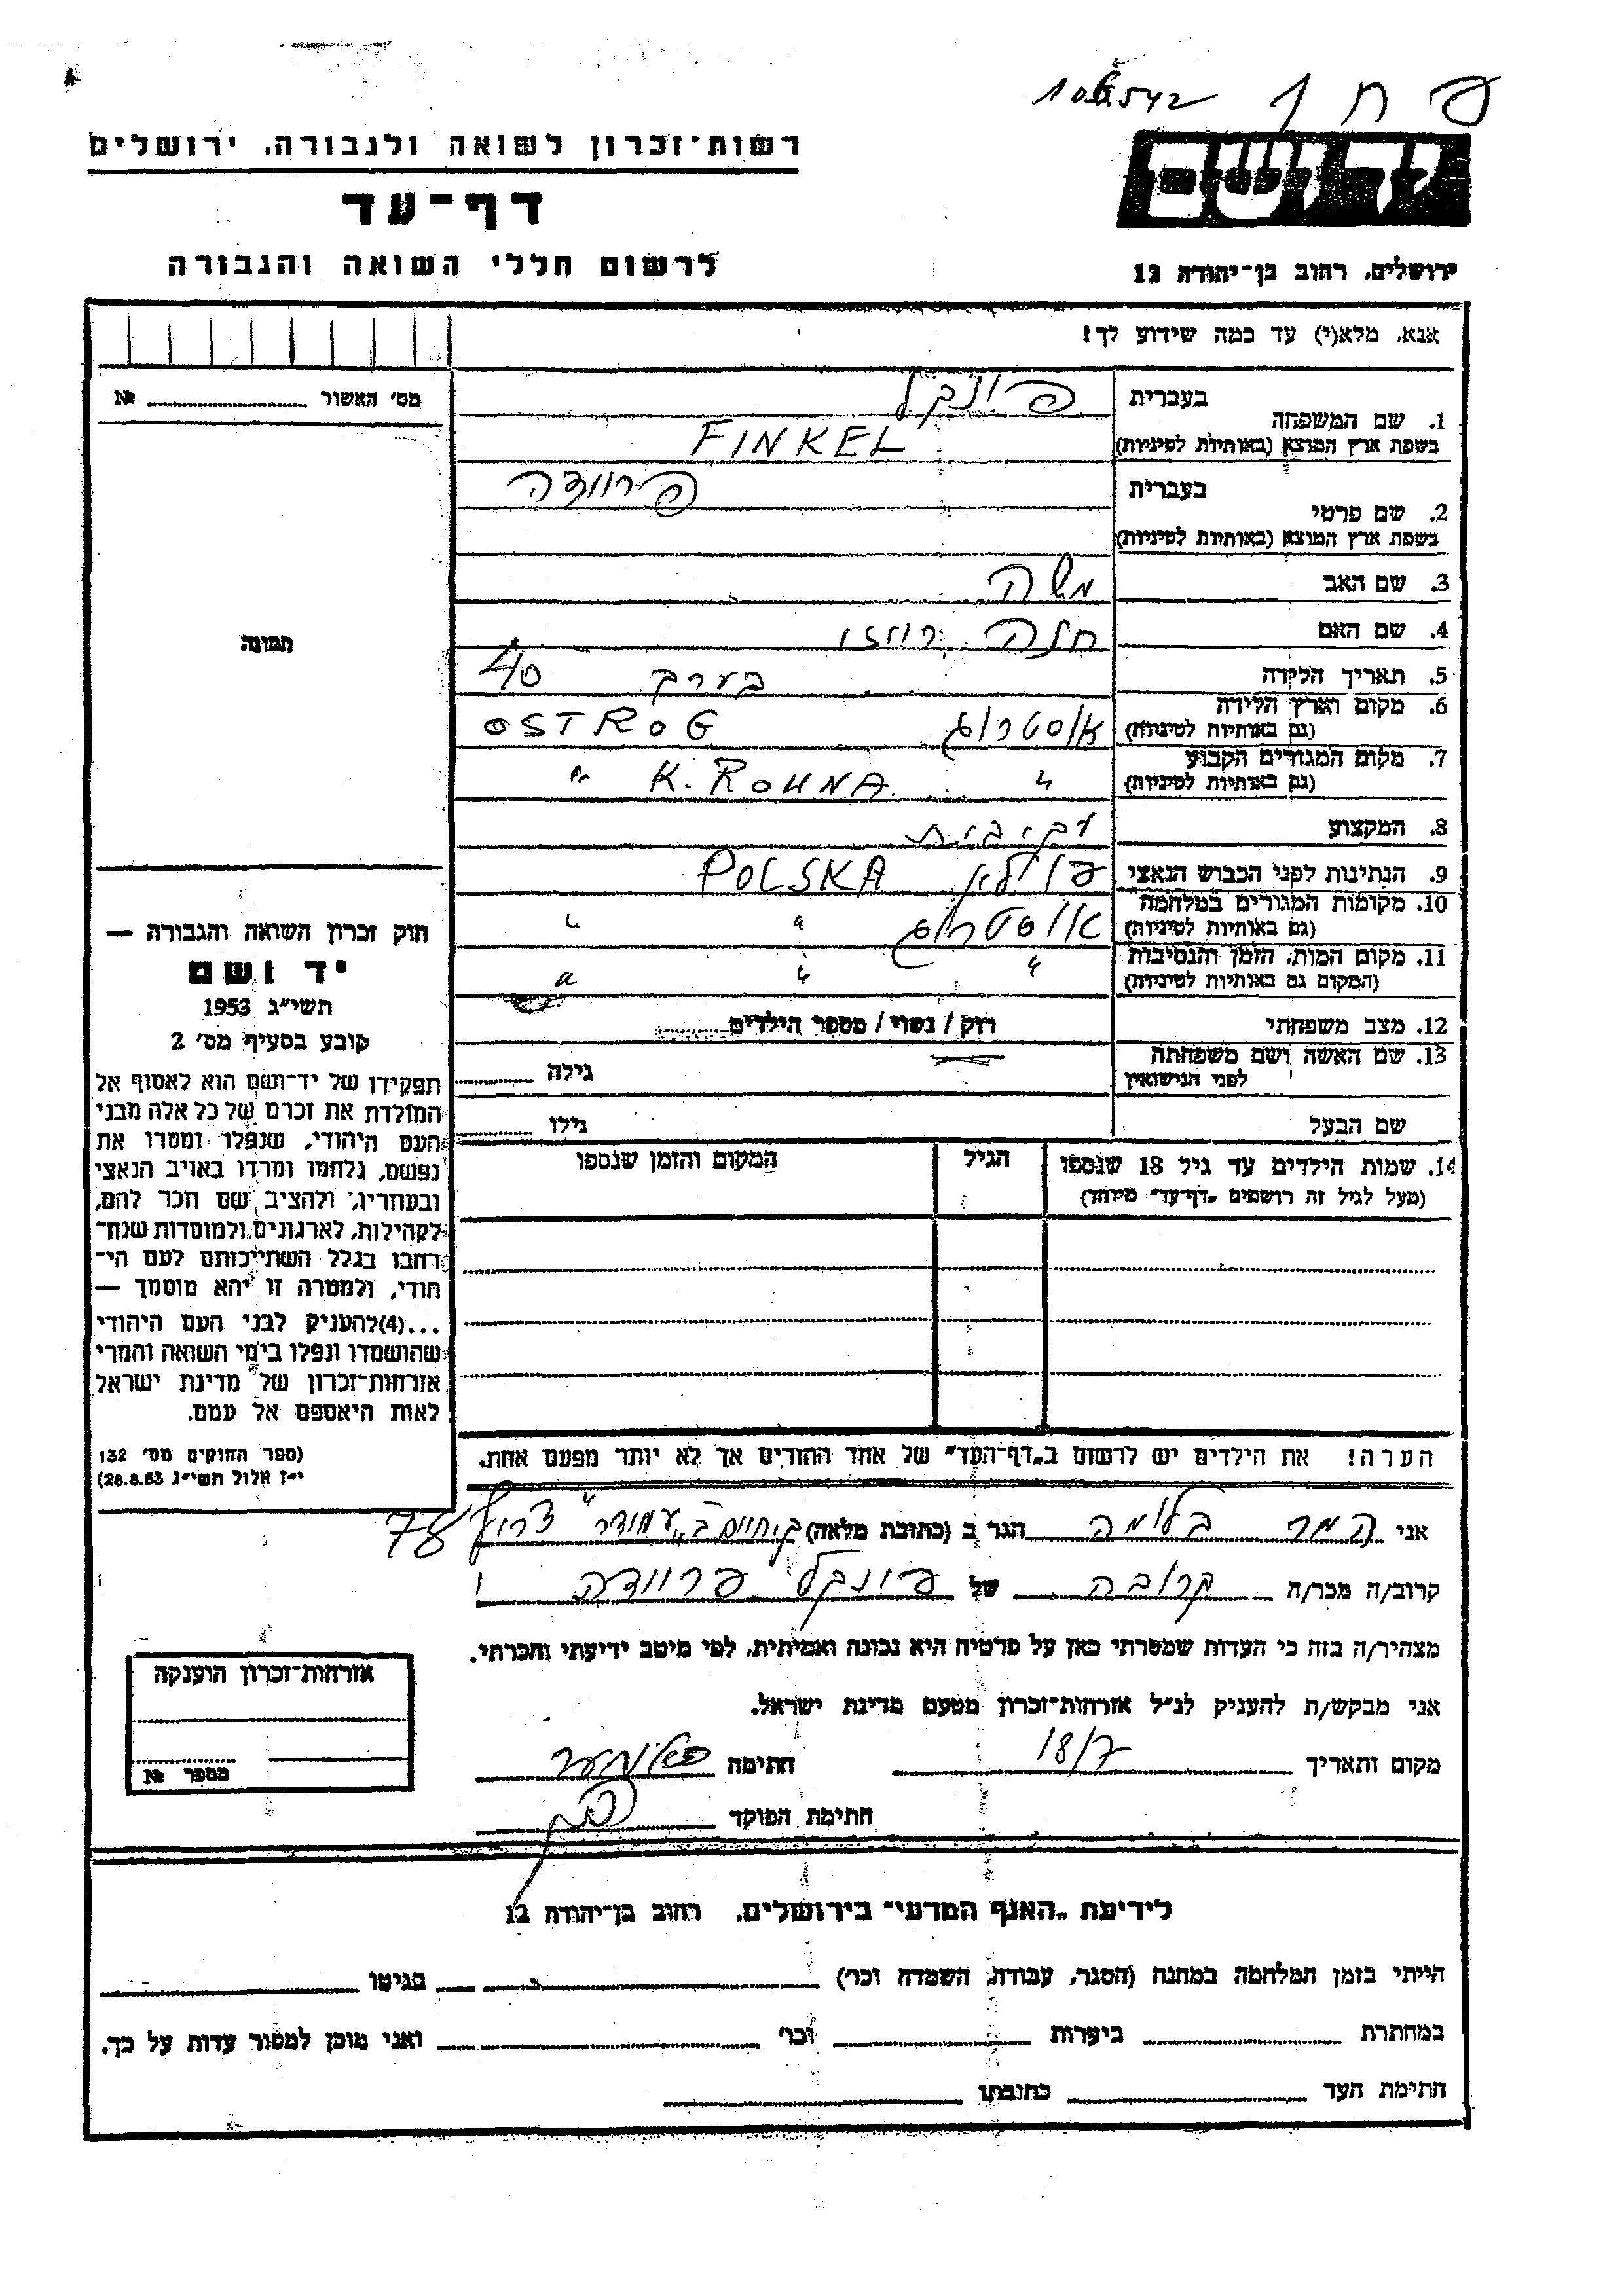 106542
פ ח ך
רשות־זכרון לשואה ולגבורה, ירושלים
דף־עד
לרשום חללי השואה והגבורה
יד ושם
ירושלים, רחוב בן־יהודה 12
אנא, מלא(י) עד כמה שידוע לך!
מס׳ האשור № 
תמונה
בעברית פינקל
1. שם המשפחה
בשפת ארץ המוצא (באותיות לטיניות) FINKEL
בעברית פרוודה
2. שם פרטי
בשפת ארץ המוצא (באותיות לטיניות)
3. שם האב משה
4. שם האם חנה רוזי
5. תאריך הלידה בערך 40
6. מקום וארץ הלידה אוסטרוג OSTROG
(גם באותיות לטיניות)
7. מקום המגורים הקבוע " K. ROWNA "
(גם באותיות לטיניות)
8. המקצוע עק. בית
9. הנתינות לפני הכבוש הנאצי פולין POLSKA
10. מקומות המגורים במלחמה אוסטרוג " "
(גם באותיות לטיניות)
11. מקום המות, הזמן והנסיבות " " "
(המקום גם באותיות לטיניות)
12. מצב משפחתי רוק / נשוי / מספר הילדים
13. שם האשה ושם משפחתה
לפני הנישואין גילה
שם הבעל גילו
14. שמות הילדים עד גיל 18 שנספו הגיל המקום והזמן שנספו
(מעל לגיל זה רושמים „דף־עד״ מיוחד)
הערה! את הילדים יש לרשום ב„דף־העד״ של אחד ההורים אך לא יותר מפעם אחת.
חוק זכרון השואה והגבורה —
יד ושם
תשי״ג 1953
קובע בסעיף מס׳ 2
תפקידו של יד־ושם הוא לאסוף אל
המולדת את זכרם של כל אלה מבני
העם היהודי, שנפלו ומסרו את
נפשם, נלחמו ומרדו באויב הנאצי
ובעוזריו, ולהציב שם וזכר להם,
לקהילות, לארגונים ולמוסדות שנח־
רבו בגלל השתייכותם לעם הי־
הודי, ולמטרה זו יהא מוסמך —
...(4) להעניק לבני העם היהודי
שהושמדו ונפלו בימי השואה והמרי
אזרחות־זכרון של מדינת ישראל
לאות היאספם אל עמם.
(ספר החוקים מס׳ 132
י״ז אלול תשי״ג 28.8.53)
אני המר בלומה הגר ב (כתובת מלאה) ק. חיים ב, „עמידר״ צריף 78
קרוב/ה מכר/ה קרובה של פינקל פרוודה
מצהיר/ה בזה כי העדות שמסרתי כאן על פרטיה היא נכונה ואמיתית, לפי מיטב ידיעתי והכרתי.
אני מבקש/ת להעניק לנ״ל אזרחות־זכרון מטעם מדינת ישראל.
מקום ותאריך 18/7 חתימה
חתימת הפוקד
אזרחות־זכרון הוענקה
מספר №
לידיעת „האגף המדעי״ בירושלים, רחוב בן־יהודה 12
הייתי בזמן המלחמה במחנה (הסגר, עבודה, השמדה וכר׳) בגיטו
במחתרת ביערות וכר׳ ואני מוכן למסור עדות על כך.
חתימת העד כתובתו